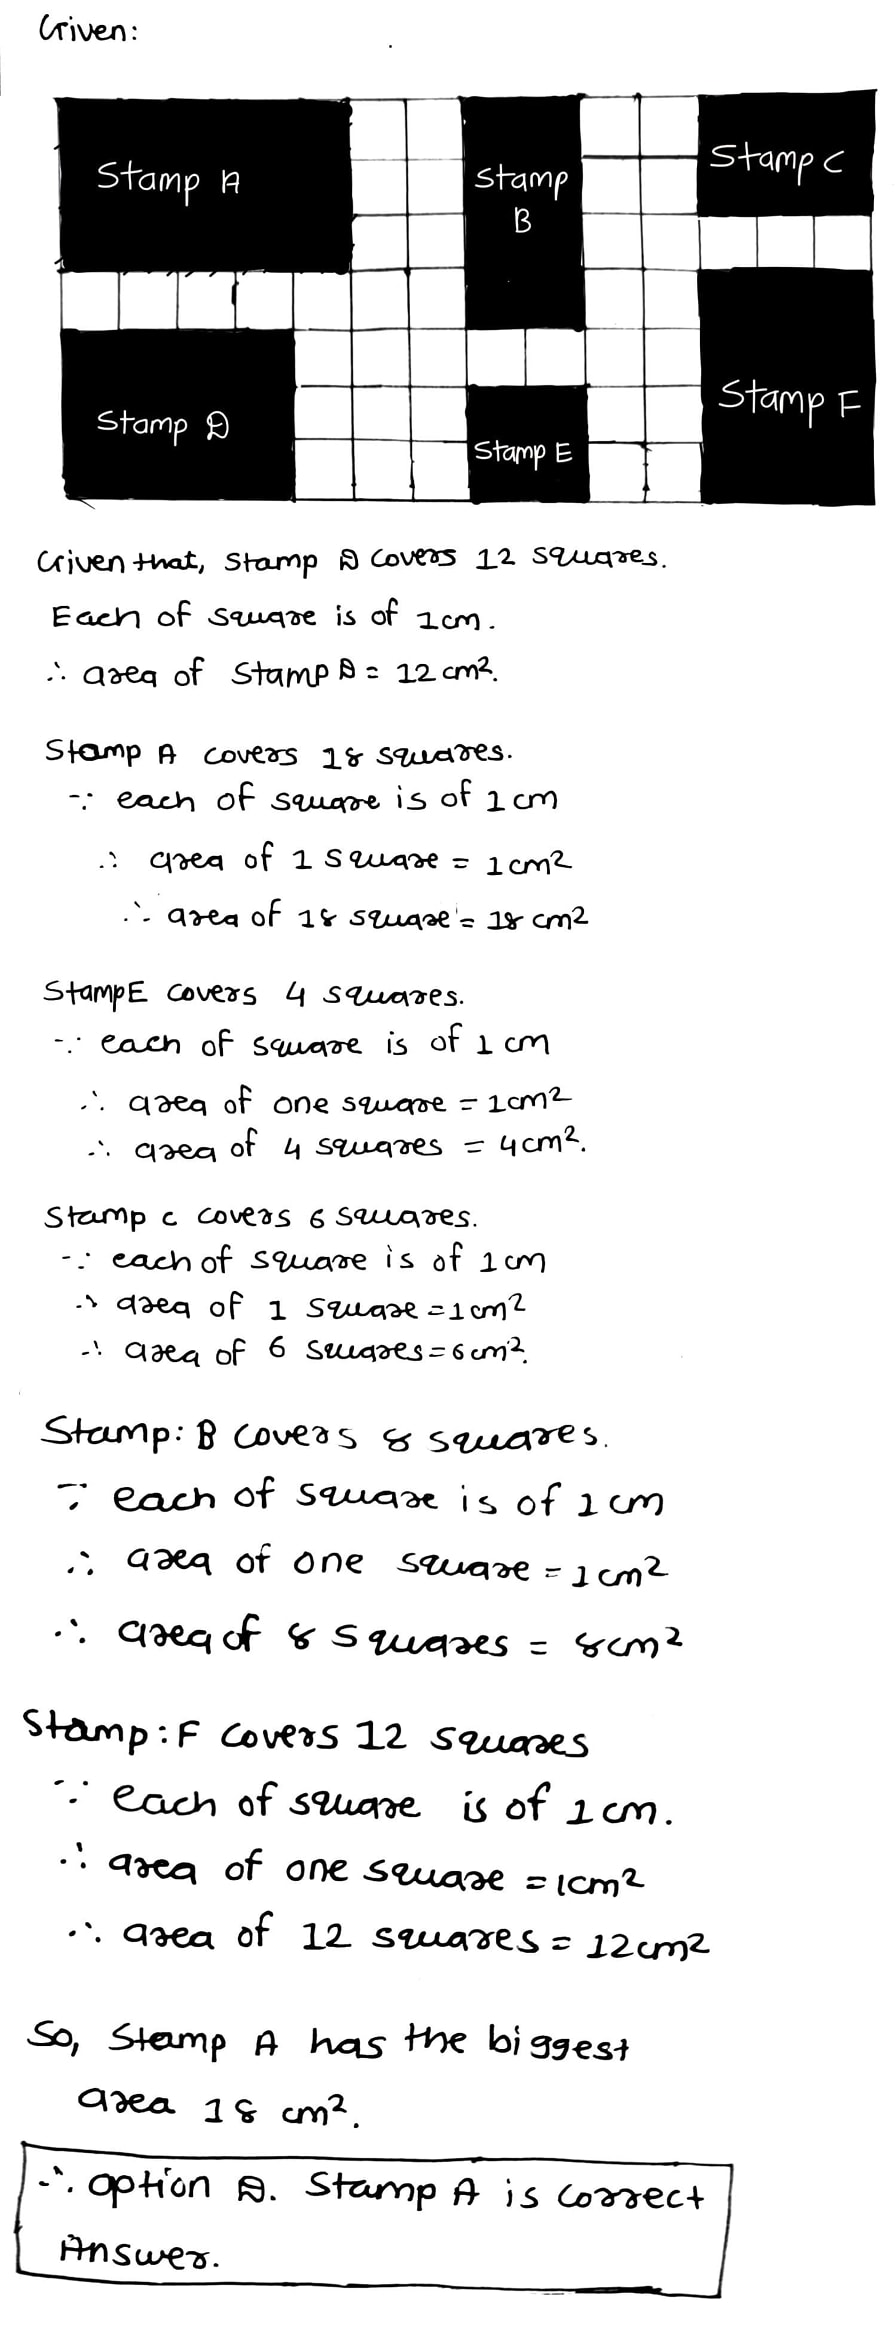 Given:
Stamp A
Stamp B
Stamp C
Stamp D
Stamp E
Stamp F
Given that, Stamp D covers 12 squares.
Each of square is of 1cm.
∴ area of Stamp D = 12 cm².
Stamp A covers 18 squares.
∵ each of square is of 1 cm
∴ area of 1 square = 1 cm²
∴ area of 18 square = 18 cm²
Stamp E covers 4 squares.
∵ each of square is of 1 cm
∴ area of one square = 1cm²
∴ area of 4 squares = 4cm².
Stamp c covers 6 squares.
∵ each of square is of 1 cm
∴ area of 1 square = 1cm²
∴ area of 6 squares = 6 cm².
Stamp: B covers 8 squares.
∵ each of square is of 1 cm
∴ area of one square = 1 cm²
∴ area of 8 squares = 8cm²
Stamp: F covers 12 squares
∵ each of square is of 1 cm.
∴ area of one square = 1cm²
∴ area of 12 squares = 12cm²
So, Stamp A has the biggest
area 18 cm².
∴ option D. Stamp A is correct
Answer.